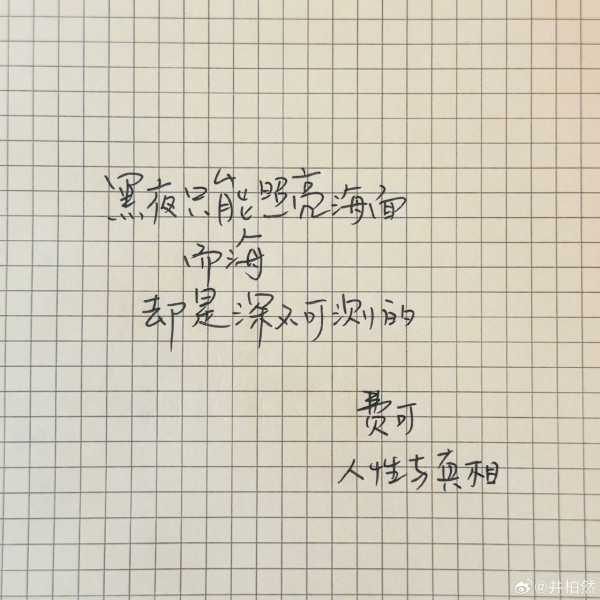 黑夜只能照亮海面
而海
却是深不可测的
费可
人性与真相
@井柏然